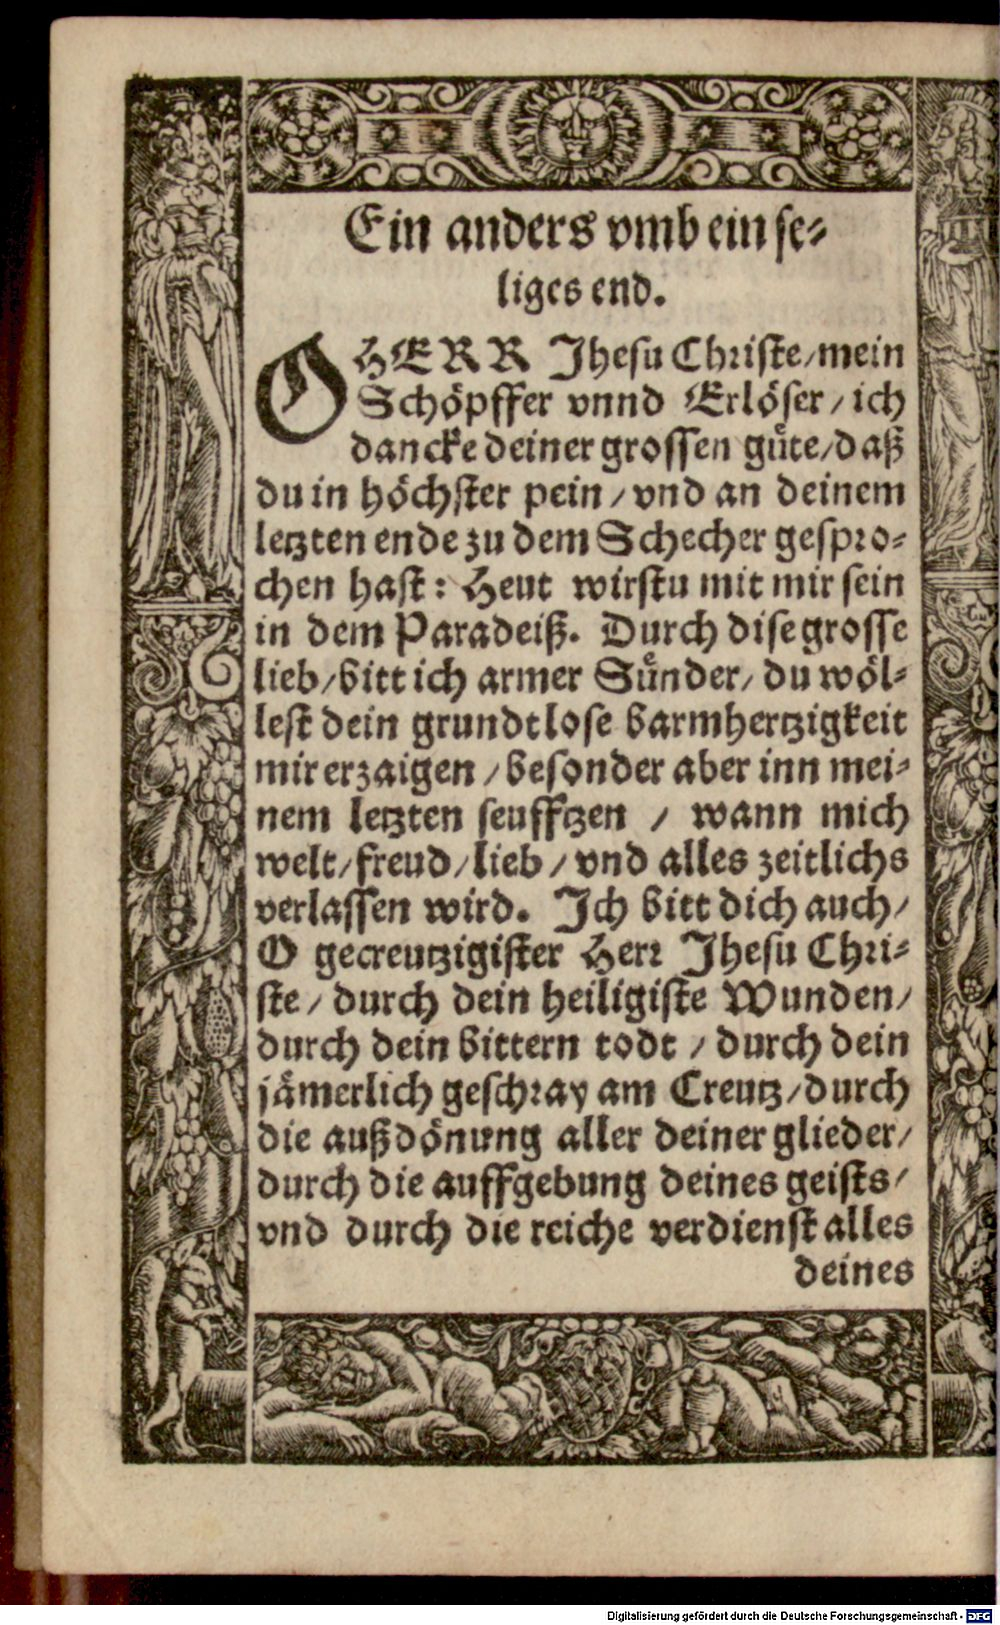 Ein anders vmb ein se⸗
liges end.
O HERR Jhesu Christe/mein
Schöpffer vnnd Erlöser/ich
dancke deiner grossen gůte/daß
du in höchster pein/vnd an deinem
letzten ende zu dem Schecher gespro⸗
chen hast: Heut wirstu mit mir sein
in dem Paradeiß. Durch dise grosse
lieb/bitt ich armer Sünder/du wöl⸗
lest dein grundtlose barmhertzigkeit
mir erzaigen/besonder aber inn mei⸗
nem letzten seufftzen/wann mich
welt/freud/lieb/vnd alles zeitlichs
verlassen wird. Ich bitt dich auch/
O gecreutzigister Herr Jhesu Chri⸗
ste/durch dein heiligiste Wunden/
durch dein bittern todt/durch dein
jämerlich geschray am Creutz/durch
die außdönung aller deiner glieder/
durch die auffgebung deines geists/
vnd durch die reiche verdienst alles
deines
Digitalisierung gefördert durch die Deutsche Forschungsgemeinschaft - DFG